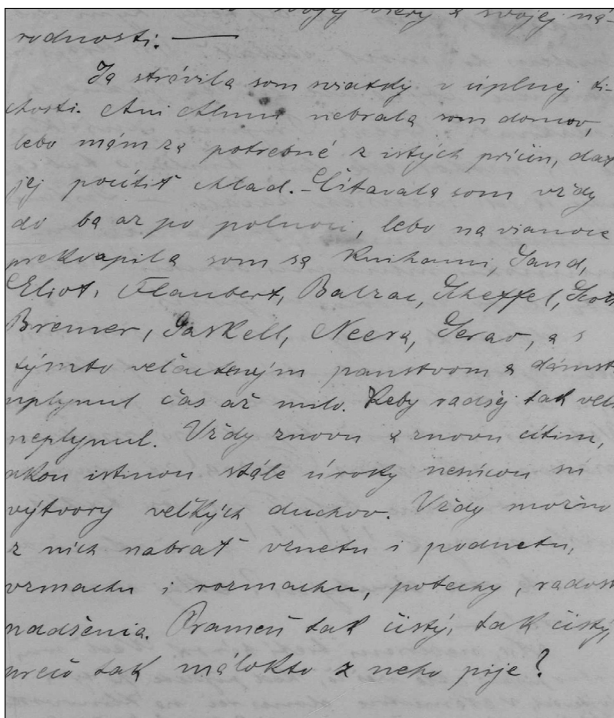 svojej viery a svojej ná-
rodnosti. —
Ja strávila som sviatky v úplnej ti-
chosti. Ani nebrala som domov,
lebo mám za potrebné z istých príčin, dať
jej pocítiť chlad. – Čítavala som vždy
do ba až po polnoci, lebo na vianoce
prekvapila som sa knihami, Sand,
Eliot, Flaubert, Balzac, Scheffel, Scott
Bremer, Gaskell, Neera, Serao, a s
týmto velecteným panstvom a dámst
uplynul čas až milo. Keby radšej tak veľ
neplynul. Vždy znovu a znovu cítim,
akou istinou stále úroky nesúcou sú
výtvory veľkých duchov. Vždy možno
z nich nabrať vznetu i podnetu,
vzmachu i rozmachu, potechy, radost
nadšenia. Prameň tak čistý, tak čistý,
prečo tak málokto z neho pije?